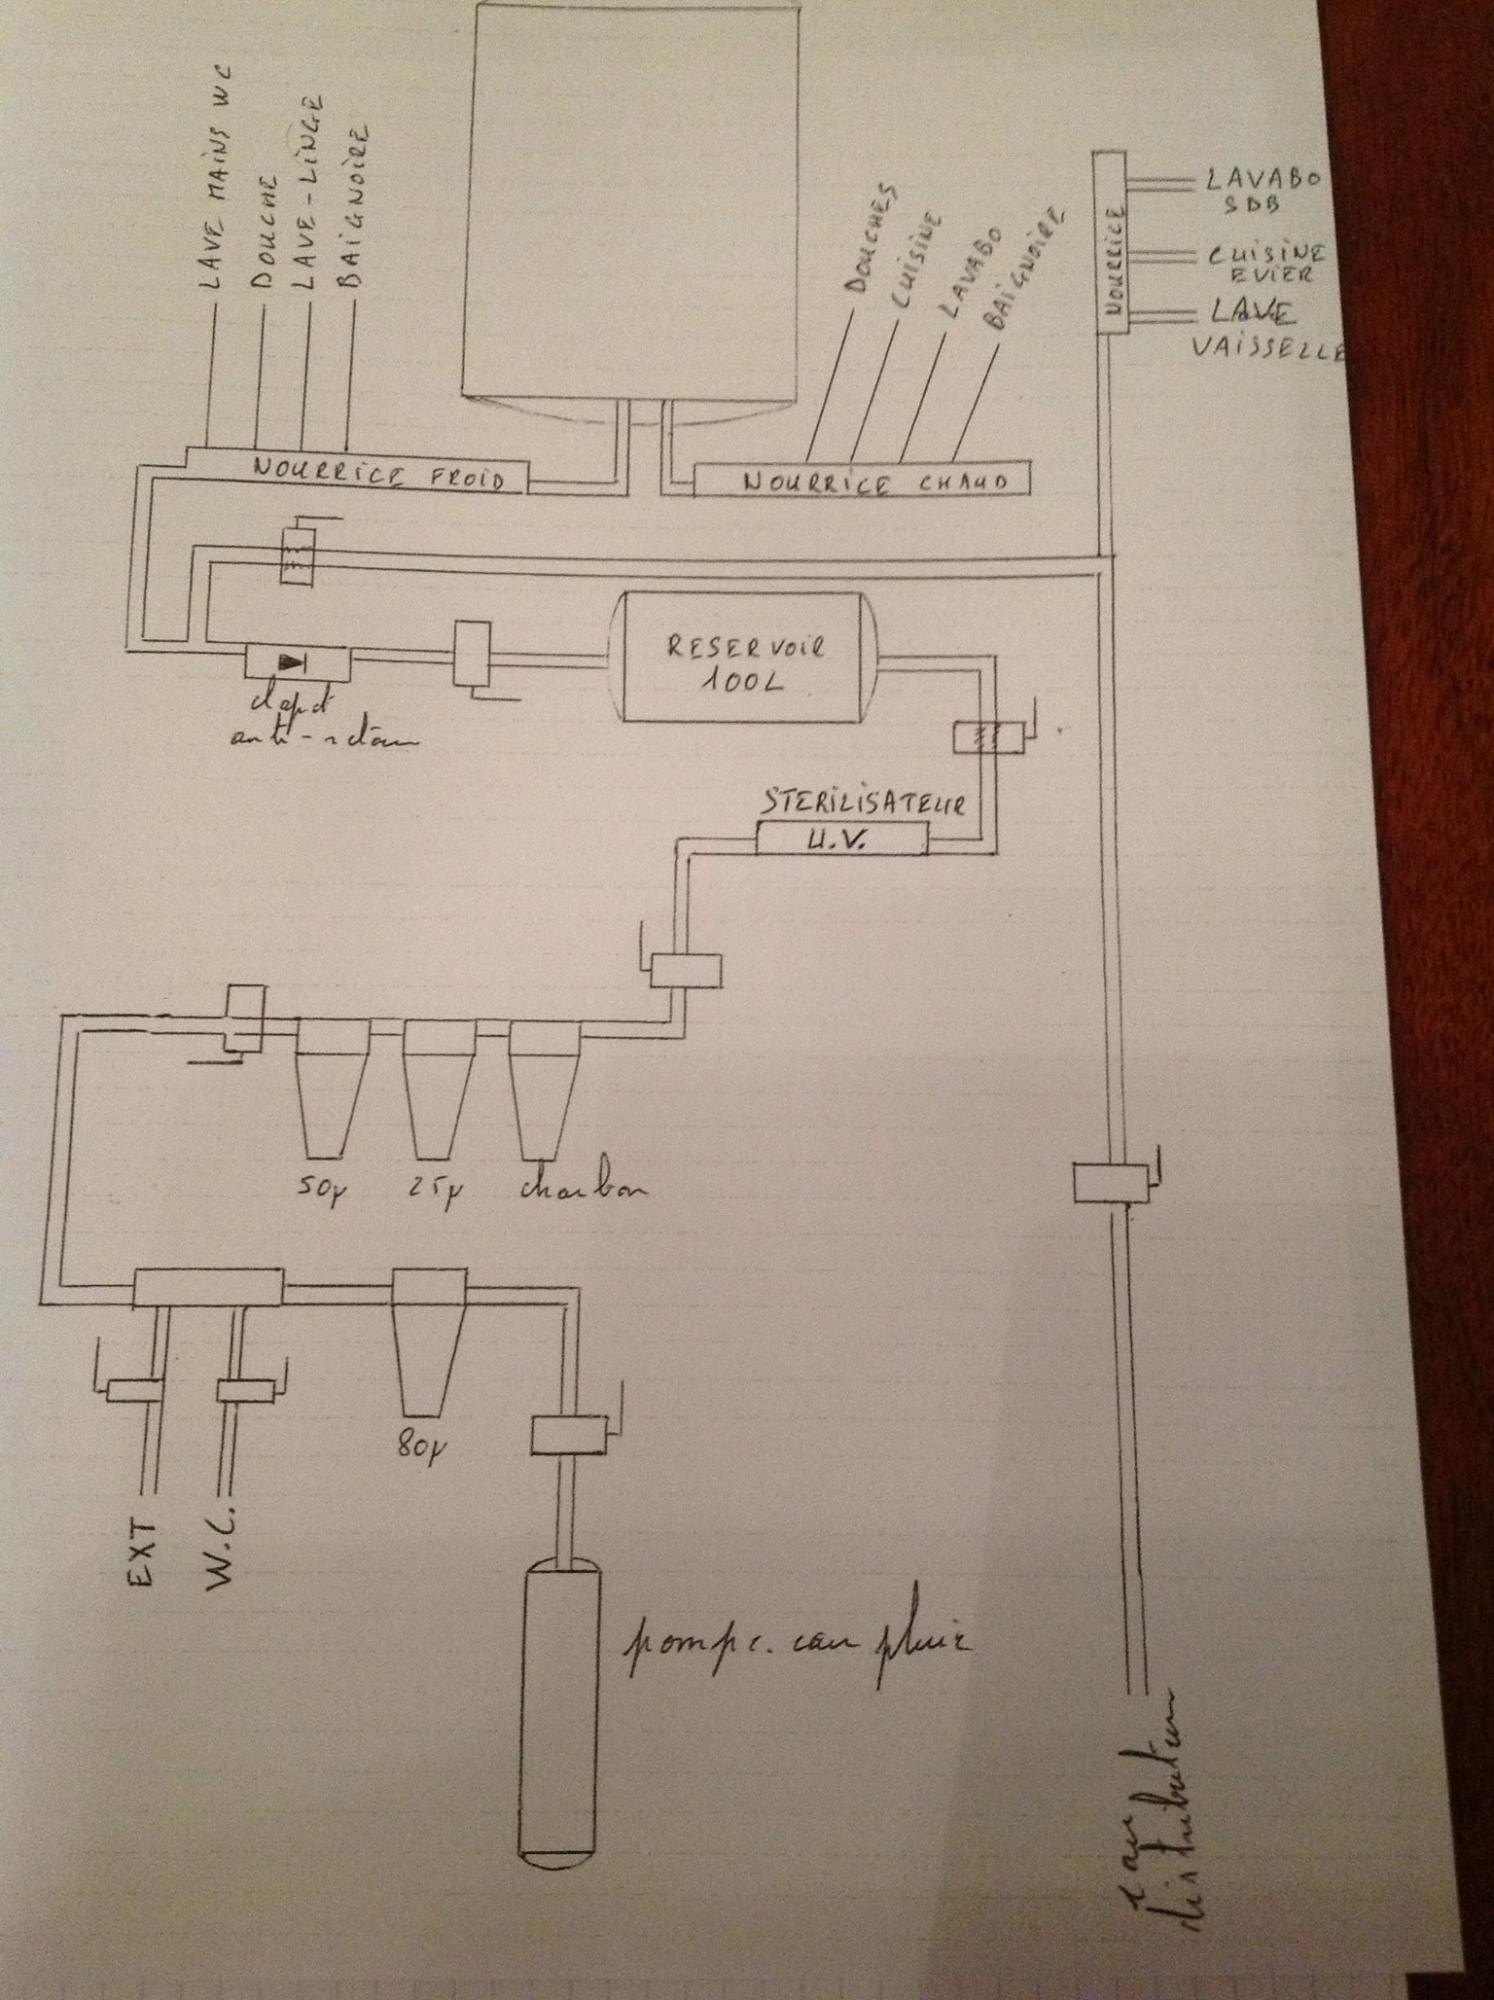 LAVE MAINS WC
DOUCHE
LAVE-LINGE
BAIGNOIRE
DOUCHES
CUISINE
LAVABO
BAIGNOIRE
NOURRICE
LAVABO
SDB
CUISINE
EVIER
LAVE
VAISSELLE
NOURRICE FROID
NOURRICE CHAUD
RESERVOIR
100L
clapet
anti-retour
STERILISATEUR
U.V.
50µ
25µ
charbon
80µ
EXT
W.C.
pompe eau pluie
eau
distributeur